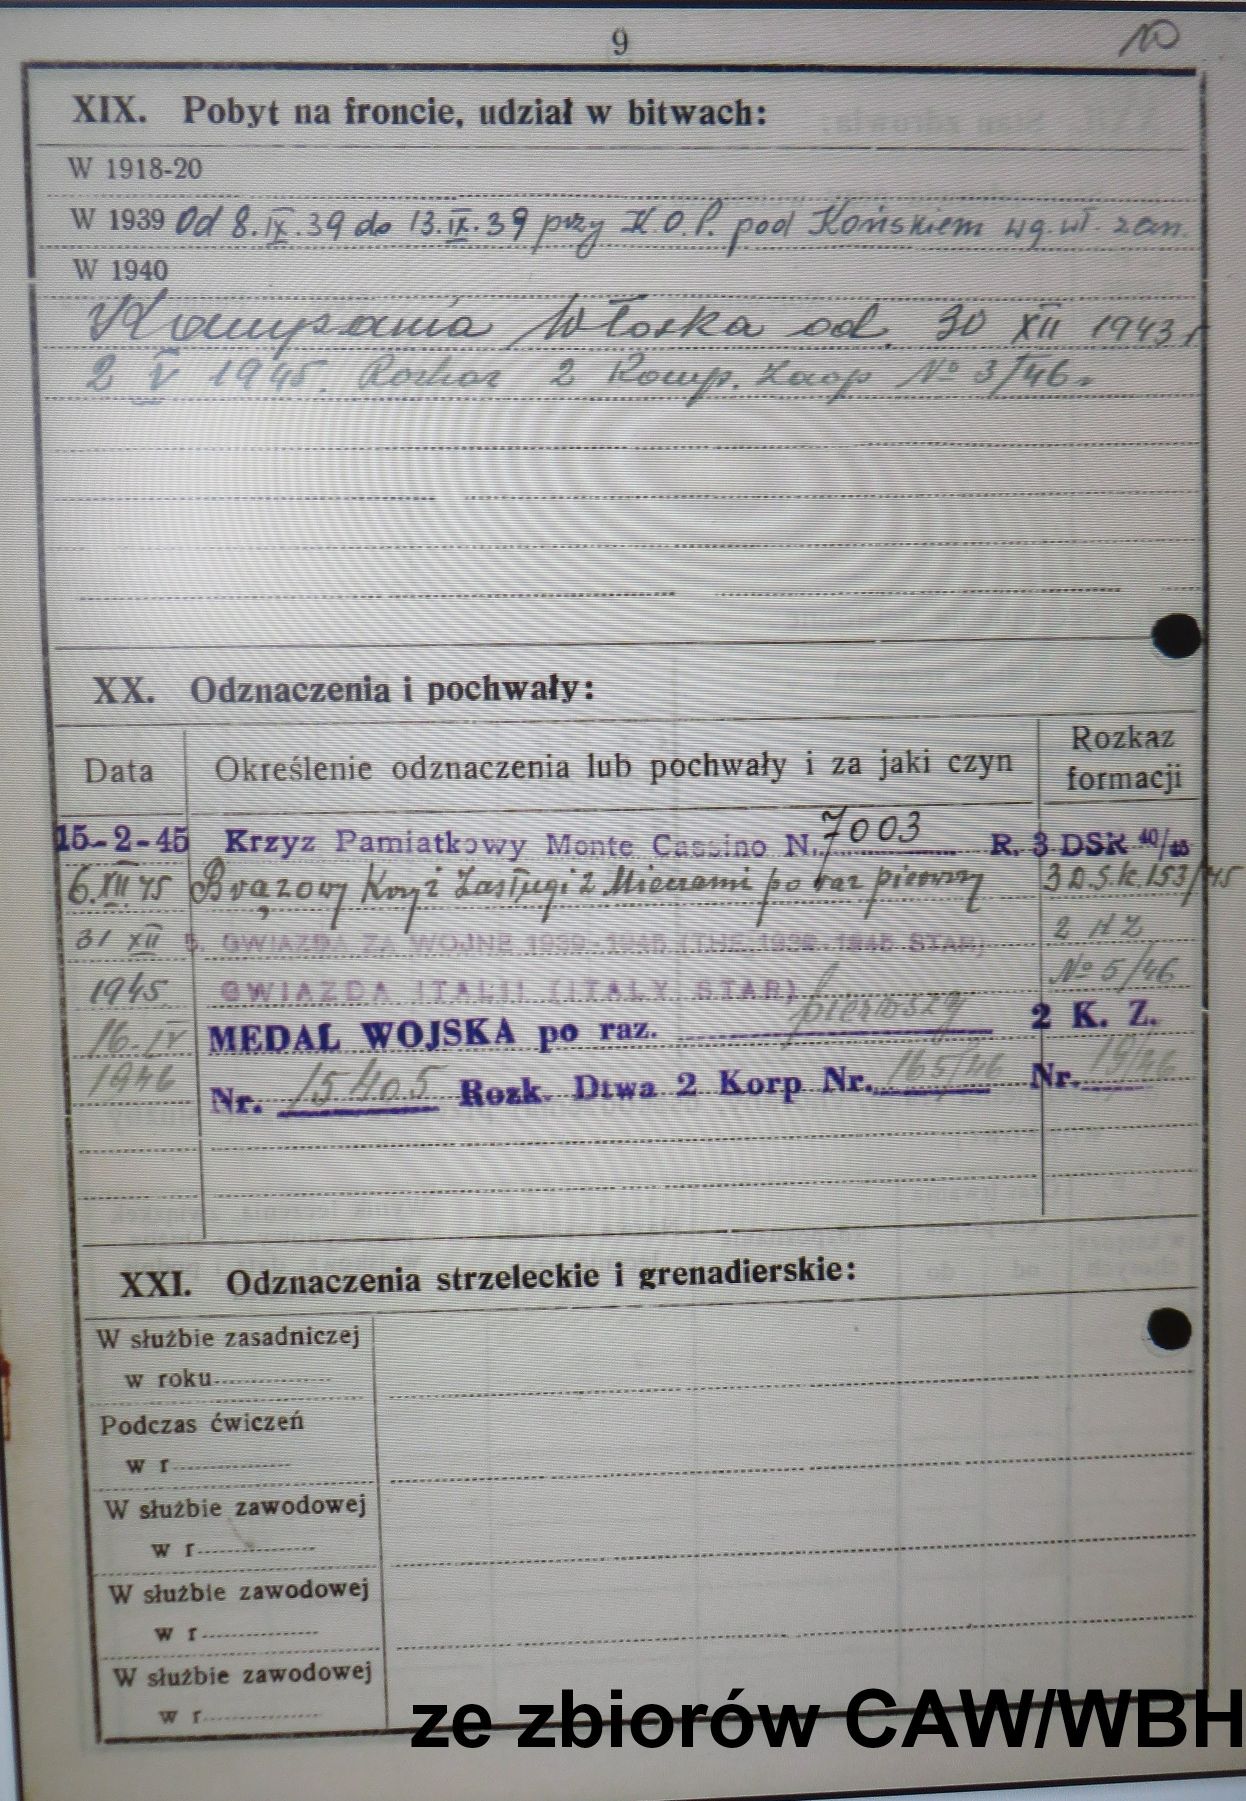 9
10
XIX. Pobyt na froncie, udział w bitwach:
W 1918-20
W 1939 Od 8.IX.39 do 13.IX.39 przy K.O.P. pod Końskiem wg. wł. zan.
W 1940
Kampania Włoska od 30 XII 1943 r
2 V 1945. Rozkaz 2 Komp. Zaop No 3/46.
XX. Odznaczenia i pochwały:
Data Określenie odznaczenia lub pochwały i za jaki czyn Rozkaz formacji
15-2-45 Krzyz Pamiatkowy Monte Cassino N. 7003 R. 3 DSK 40/45
6.XII.45 Brązowy Krzyż Zasługi z Mieczami po raz pierwszy 3 D.S.K. 153/45
31 XII GWIAZDA ZA WOJNE 1939-1945 (THE 1939-1945 STAR) 2 K Z
1945 GWIAZDA ITALII (ITALY STAR) No 5/46
16.IV MEDAL WOJSKA po raz. pierwszy 2 K. Z.
1946 Nr. 15405 Rozk. Dtwa 2 Korp Nr. 165/46 Nr. 19/46
XXI. Odznaczenia strzeleckie i grenadierskie:
W służbie zasadniczej
w roku
Podczas ćwiczeń
w r
W służbie zawodowej
w r
W służbie zawodowej
w r
W służbie zawodowej
w r
ze zbiorów CAW/WBH